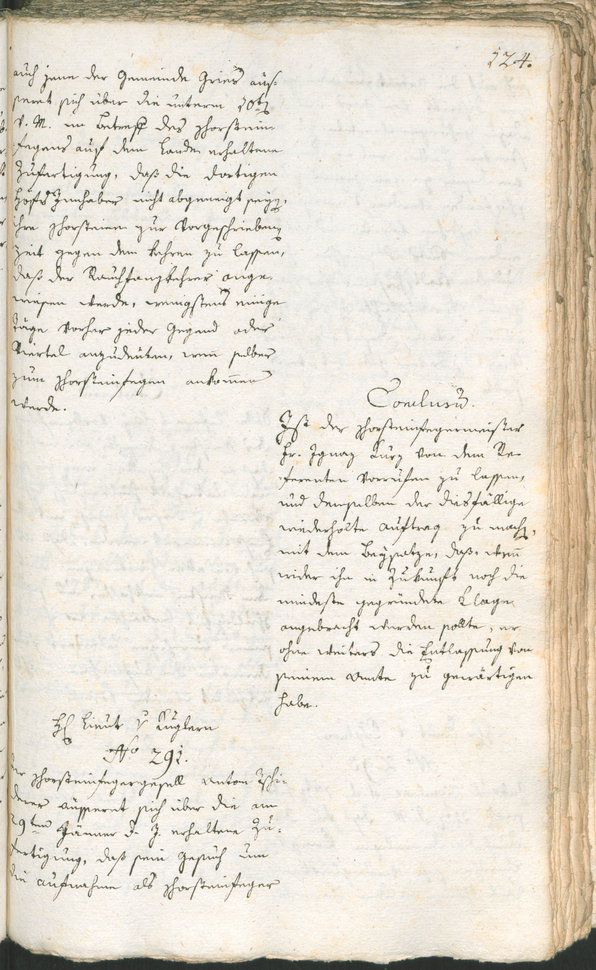 124.
auch jene der Gemeinde Gries äus-
seret sich über die unterm 10ten
v. M. in Betreff des Schorstein
fegens auf dem Lande erhaltene
Zufertigung, daß die dortigen
Hofs Innhaber nicht abgeneigt seyen,
ihre Schorsteine zur vorgeschriebenen
Zeit gegen dem kehren zu lassen,
daß der Rauchfangkehrer ange-
wiesen werde, wenigstens einige
Täge vorher jeder Gegend oder
Viertel anzudeuten, wenn selber
zum Schorsteinfegen ankommen
werde.
Conclusum.
Ist der Schorsteinfegermeister
Hr. Ignaz Kurz von dem Re-
ferenten vorrufen zu lassen,
und demselben der diesfällige
wiederholte Auftrag zu machen,
mit dem Beysatze, daß, wenn
wider ihn in Zukunft noch die
mindeste gegründete Klage
angebracht werden sollte, er
ohne weiters die Entlassung von
seinem Amte zu gewärtigen
habe.
H Lieut. v Kuglern
No 291.
Der Schorsteinfegergesell Anton
derer äusseret sich über die am
29ten Jänner d. J. erhaltene Zu-
fertigung, daß sein Gesuch um
die Aufnahme als Schorsteinfeger